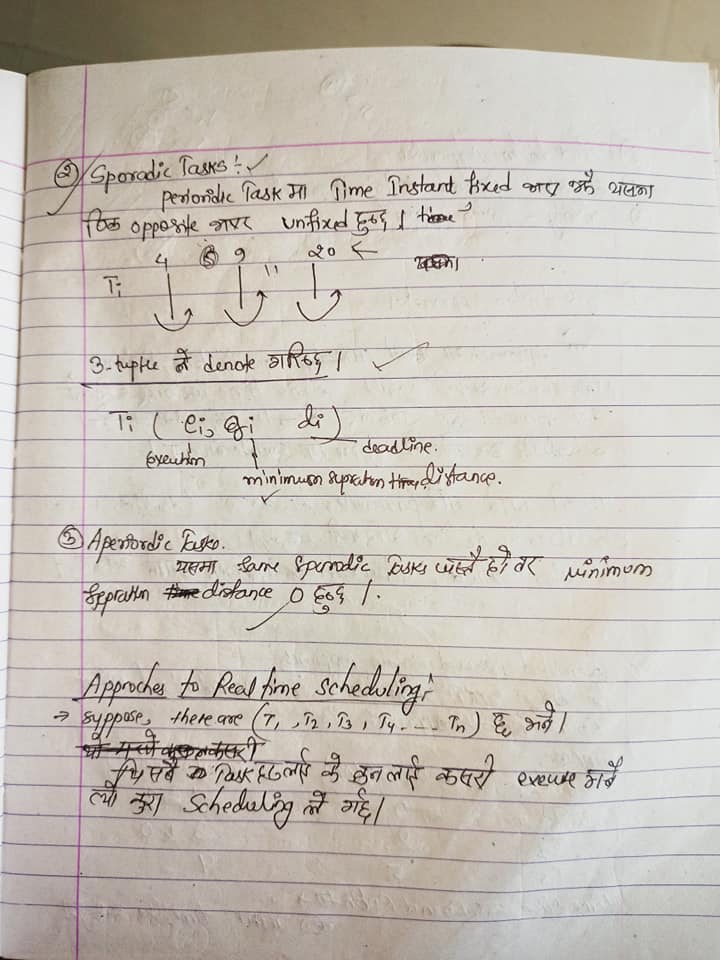 ② Sporadic Tasks :-
periodic Task मा Time Instant fixed भए झै यसमा
ठिक opposite भएर unfixed हुन्छ।
4 9 20
Ti
3-tuple ले denote गरिन्छ।
Ti ( ei, gi di)
execution deadline.
minimum distance.
③ Aperiordic Tasks.
यसमा same Sporadic Tasks जस्तै हो तर minimum
distance 0 हुन्छ।
Approches to Real time Scheduling:
→ Suppose, there are (T1, T2, T3, T4 --- Tn) छ भने।
Task हरुलाई के कसरी गर्ने
त्यो कुरा Scheduling ले गर्छ।